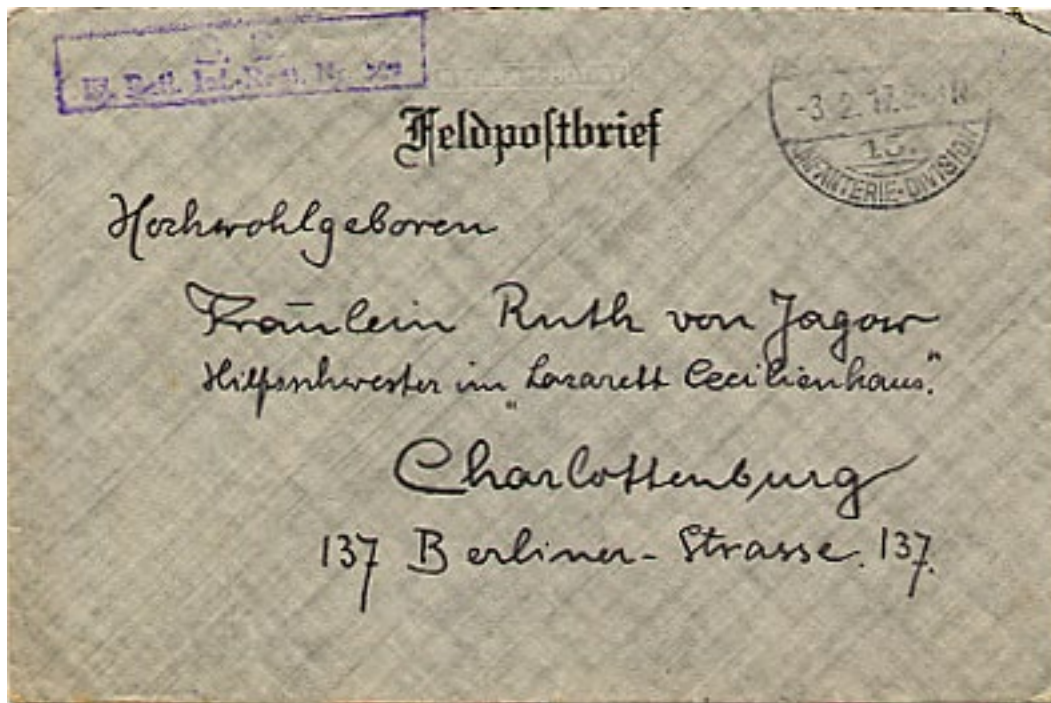 S. B.
Batl. Inf.-Regt. Nr.
Feldpostbrief
-3. 2. 17.
15.
INFANTERIE-DIVISION
Hochwohlgeboren
Fräulein Ruth von Jagow
Hilfsschwester im „Lazarett Cecilienhaus."
Charlottenburg
137 Berliner-Strasse. 137.